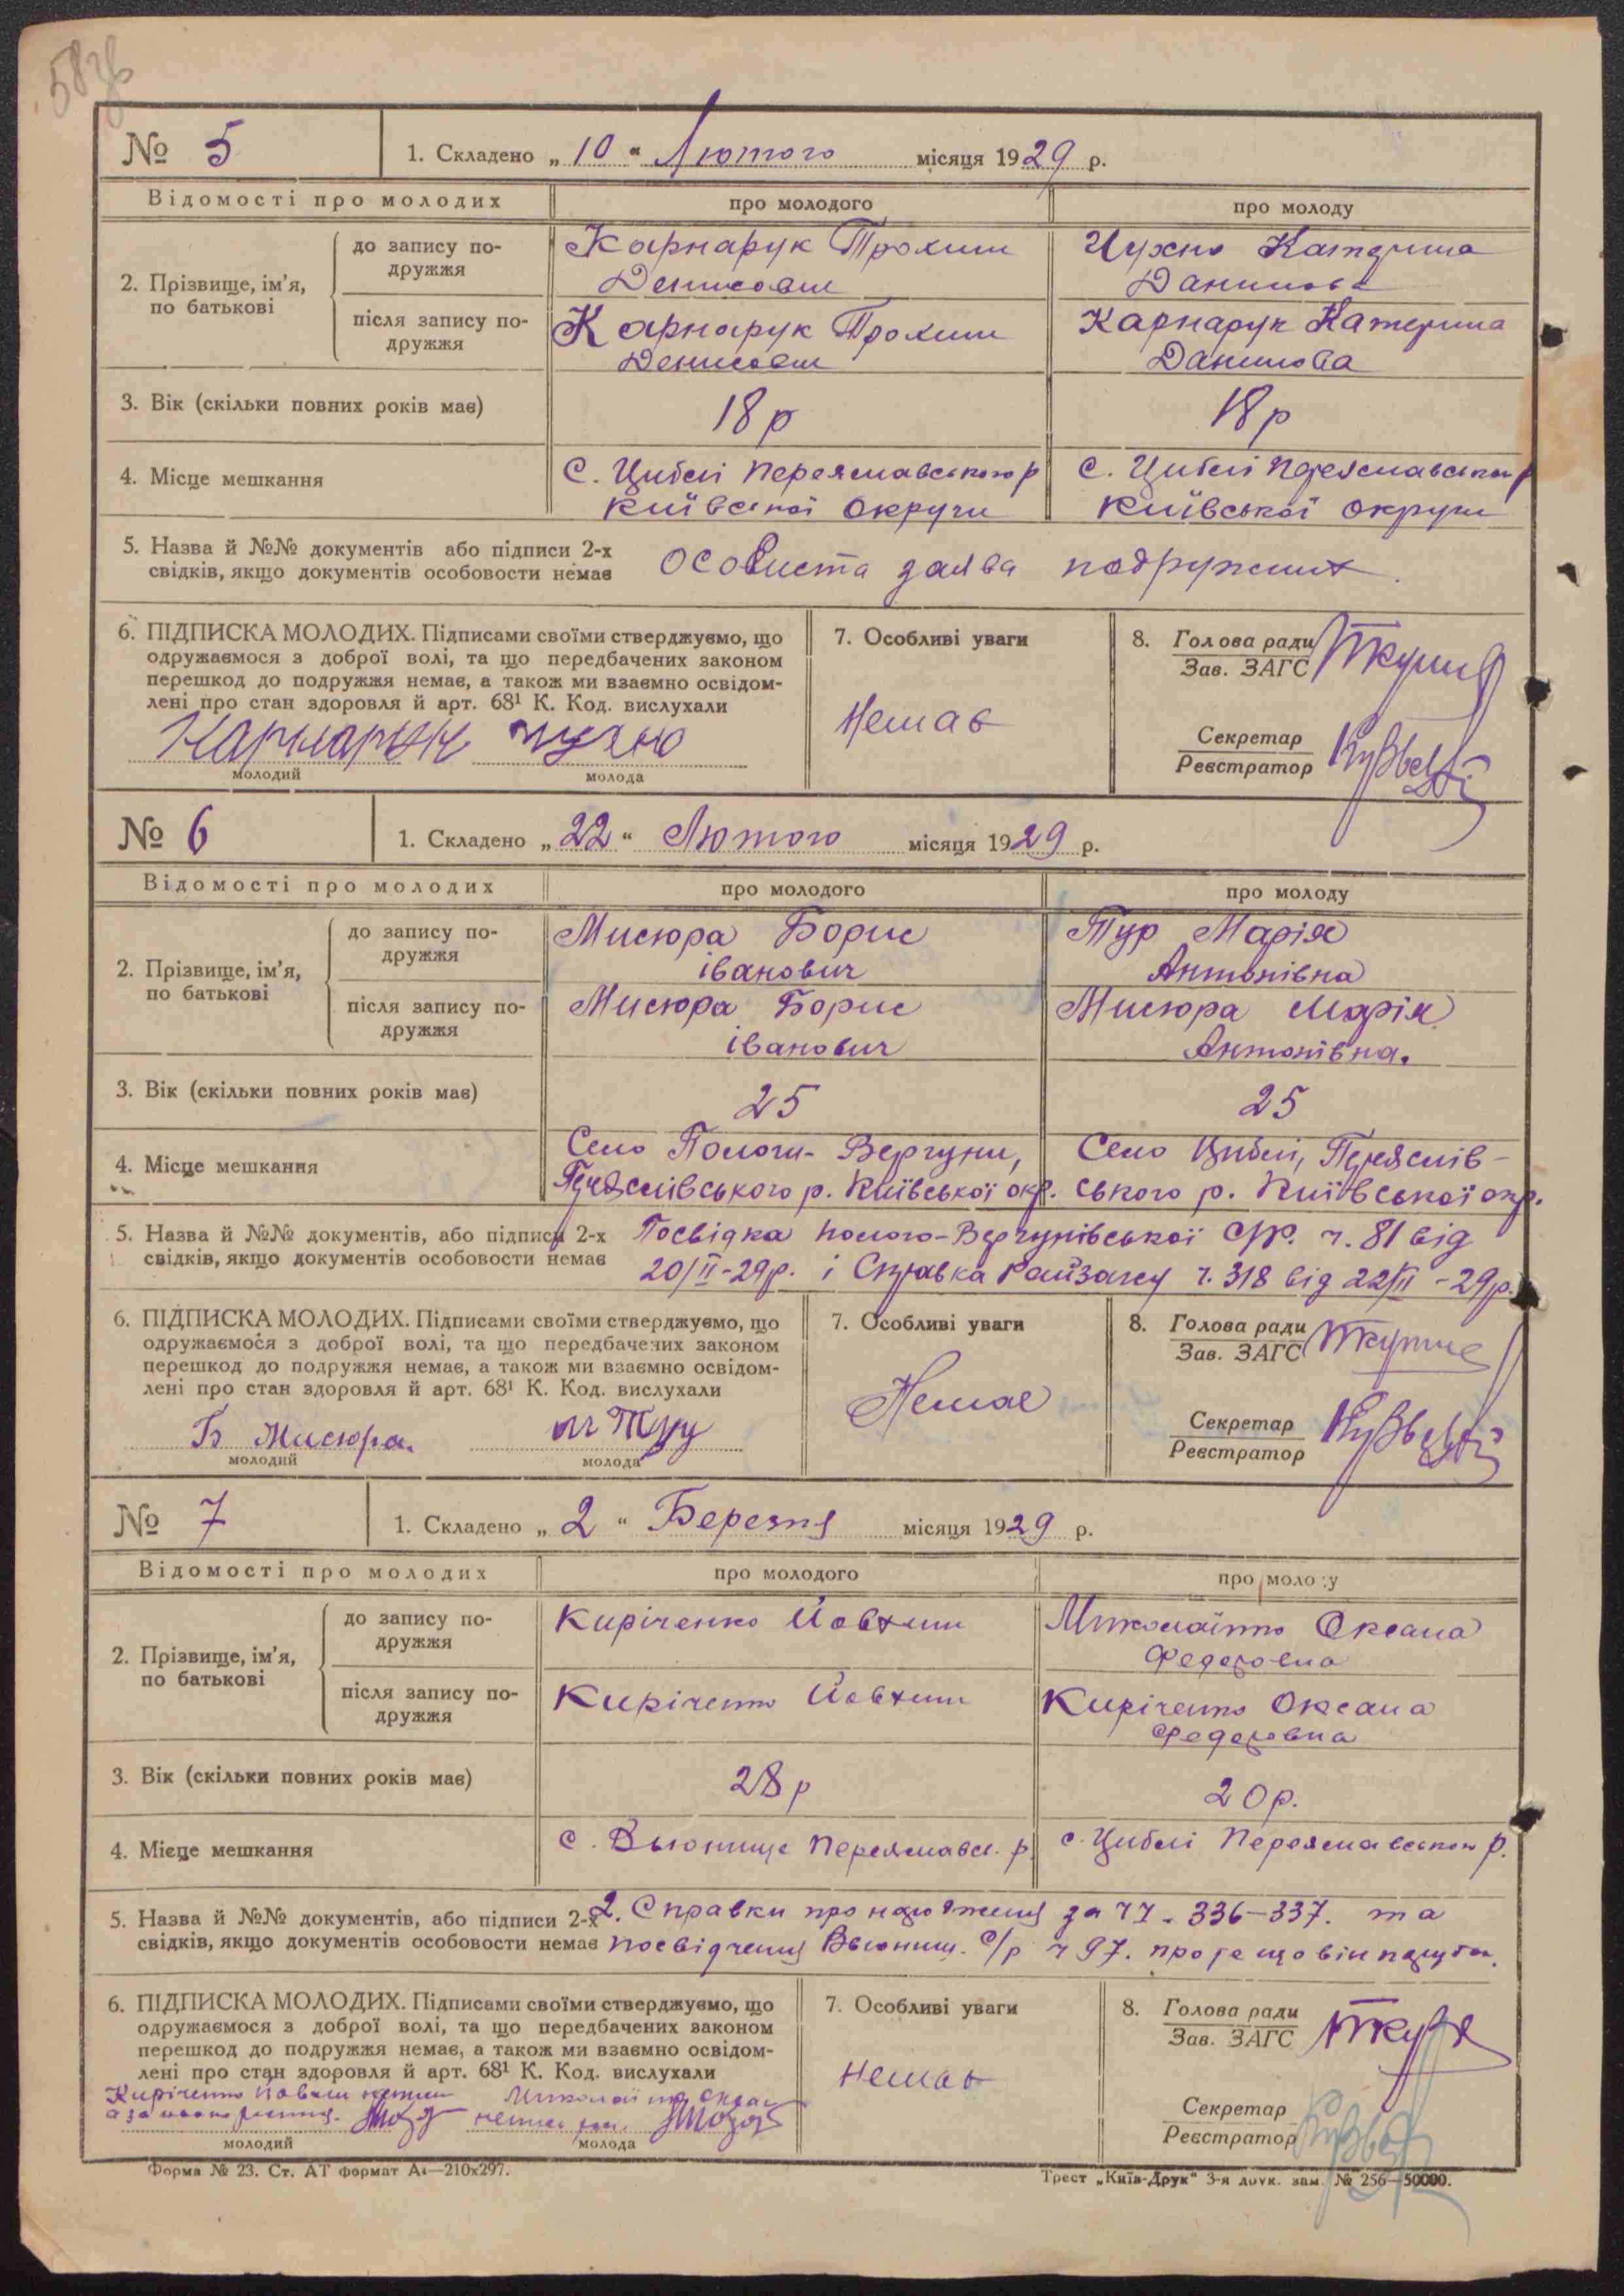 58
№ 5
1. Складено „10“ Лютого місяця 1929 р.
Відомості про молодих
про молодого
про молоду
2. Прізвище, ім'я, по батькові
до запису подружжя
Карнарук Трохим
Денисови
Чухно Катерина
Данилова
після запису подружжя
Карнарук Трохим
Денисови
Карнарук Катерина
Данилова
3. Вік (скільки повних років має)
18 р
18 р
4. Місце мешкання
С. Циблі Переяславського р
Київської Округи
с. Циблі Переяславськог р
Київської округи
5. Назва й №№ документів або підписи 2-х
свідків, якщо документів особовости немає
Особиста заява подружжих.
6. ПІДПИСКА МОЛОДИХ. Підписами своїми стверджуємо, що
одружаємося з доброї волі, та що передбачених законом
перешкод до подружжя немає, а також ми взаємно освідом-
лені про стан здоровля й арт. 68¹ К. Код. вислухали
Карнарук
молодий
чухно
молода
7. Особливі уваги
Немає
8. Голова ради
Зав. ЗАГС
Секретар
Реєстратор
№ 6
1. Складено „22“ Лютого місяця 1929 р.
Відомості про молодих
про молодого
про молоду
2. Прізвище, ім'я, по батькові
до запису подружжя
Мисюра Борис
іванович
Тур Марія
Антонівна
після запису подружжя
Мисюра Борис
іванович
Мисюра Марія
Антонівна.
3. Вік (скільки повних років має)
25
25
4. Місце мешкання
Село Пологи-Вергуни,
Переяслівського р. Київської окр.
Село Циблі, Переяслів-
ського р. Київської окр.
5. Назва й №№ документів, або підписи 2-х
свідків, якщо документів особовости немає
Посвідка Полого-Вергунівської С/Р. ч. 81 від
20/II-29р. і Справка Райзагсу ч. 318 від 22/II-29р.
6. ПІДПИСКА МОЛОДИХ. Підписами своїми стверджуємо, що
одружаємося з доброї волі, та що передбачених законом
перешкод до подружжя немає, а також ми взаємно освідом-
лені про стан здоровля й арт. 68¹ К. Код. вислухали
Б Мисюра.
молодий
м Тур
молода
7. Особливі уваги
Немає
8. Голова ради
Зав. ЗАГС
Секретар
Реєстратор
№ 7
1. Складено „2“ Березня місяця 1929 р.
Відомості про молодих
про молодого
про молоду
2. Прізвище, ім'я, по батькові
до запису подружжя
Киріченко Йовхим
Миколаїнко Оксана
Федоровна
після запису подружжя
Киріченко Йовхим
Киріченко Оксана
Федоровна
3. Вік (скільки повних років має)
28 р
20 р.
4. Місце мешкання
с. Вьюнище Переяславсь. р.
с. Циблі Переяславськог р.
5. Назва й №№ документів, або підписи 2-х
свідків, якщо документів особовости немає
2. Справки про народження за чч. 336-337. та
посвідчення Вьюнищ. с/р ч 97. про те що він
6. ПІДПИСКА МОЛОДИХ. Підписами своїми стверджуємо, що
одружаємося з доброї волі, та що передбачених законом
перешкод до подружжя немає, а також ми взаємно освідом-
лені про стан здоровля й арт. 68¹ К. Код. вислухали
Киріченко
молодий
молода
7. Особливі уваги
Немає
8. Голова ради
Зав. ЗАГС
Секретар
Реєстратор
Форма № 23. Ст. АТ формат А4—210x297.
Трест „Київ-Друк“ 3-я друк. зам. № 256—50000.